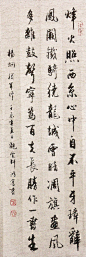 烽火照西京心中自不平牙璋辭
鳳闕鐵騎繞龍城雪暗凋旗畫風
多雜鼓聲寧為百夫長勝作一書生
楊炯從軍行